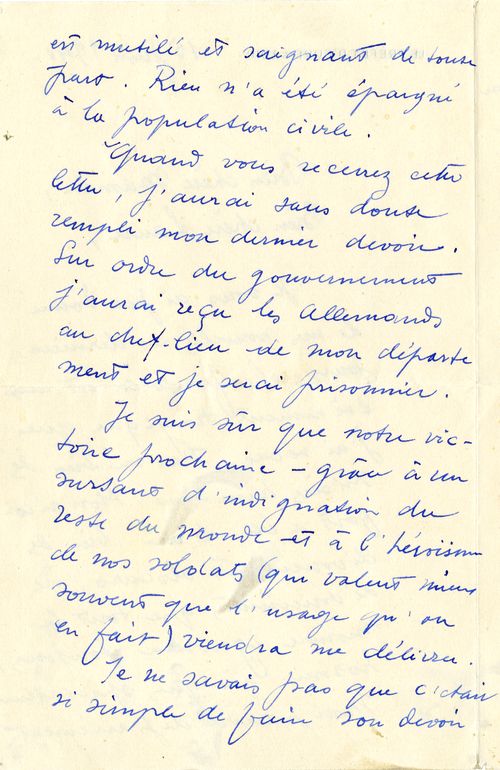 est mutilé et saignant de toute
part. Rien n'a été épargné
à la population civile.
Quand vous recevrez cette
lettre, j'aurai sans doute
rempli mon dernier devoir.
Sur ordre du gouvernement
j'aurai reçu les Allemands
au chef-lieu de mon départe
ment et je serai prisonnier.
Je suis sûr que notre vic-
toire prochaine – grâce à un
sursaut d'indignation du
reste du monde et à l'héroïsme
de nos soldats (qui valent mieux
souvent que l'usage qu'on
en fait) viendra me délivrer.
Je ne savais pas que c'était
si simple de faire son devoir